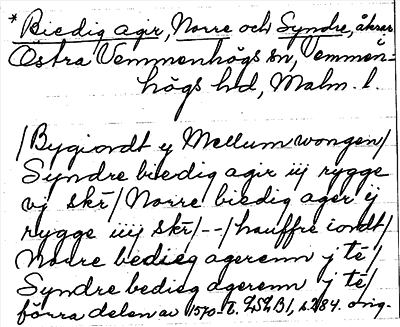 * Biedig agir, Norre och Syndre, åkrar
Östra Vemmenhögs sn, Vemmen-
högs hd, Malm. l.
/Bygiordt y Mellum wongen/
Syndre biedig agir iij rygge
vj skr̄/ Norre biedig ager ij
rygge iiij skr̄/--/hauffre iordt/
Norre bedieg agerenn j te/
Syndre biedeg agerenn j te/
förra delen av 1570-t. LSLB1, s. 284. orig-